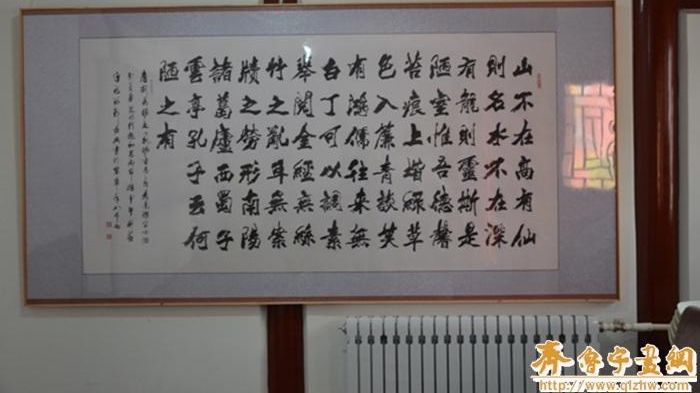 山不在高有仙
則名水不在深
有龍則靈斯是
陋室惟吾德馨
苔痕上堦綠草
色入簾青談笑
有鴻儒往來無
白丁可以調素
琴閱金經無絲
竹之亂耳無案
牘之勞形南陽
諸葛廬西蜀子
雲亭孔子云何
陋之有
齐鲁字畫網
http://www.qlzhw.com